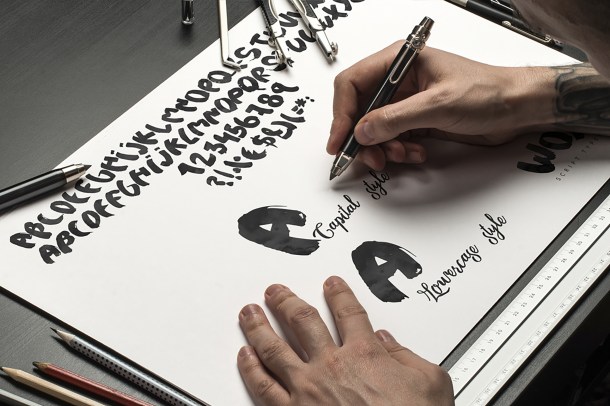 ABCDEFGHiJKLMNOPQRSTUV
ABCDEFGHiJKLMNOPQRSTUVWXYZ
123456789
A Capital style
A Lowercase style